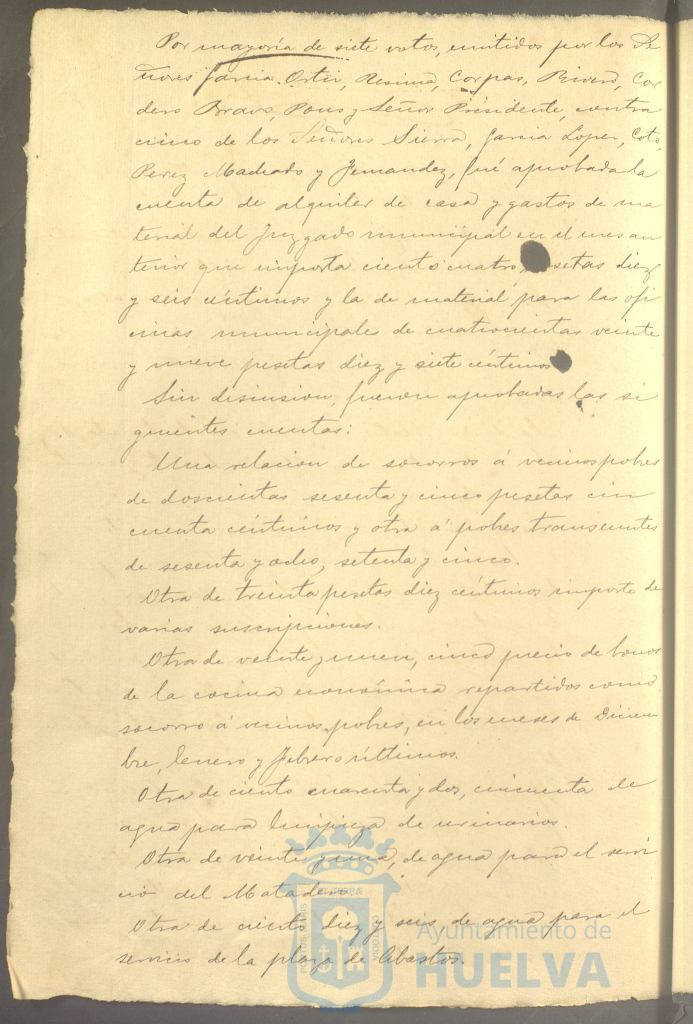 Por mayoría de siete votos, emitidos por los Se
ñores Garcia Ortiz, Resima, Corpas, Rivero, Cor
dero Bravo, Pons y Señor Presidente, contra
cinco de los Señores Sierra, Garcia Lopez, Coto,
Perez Machado y Fernandez, fué aprobada la
cuenta de alquiler de casa y gastos de ma
terial del Juzgado municipal en el mes an
terior que importa ciento cuatro pesetas diez
y seis céntimos y la de material para las ofi
cinas municipales de cuatrocientas veinte
y nueve pesetas diez y siete céntimos
Sin discusion, fueron aprobadas las si
guientes cuentas:
Una relacion de socorros á vecinos pobres
de doscientas sesenta y cinco pesetas cin
cuenta céntimos y otra á pobres transeuntes
de sesenta y ocho, setenta y cinco.
Otra de treinta pesetas diez céntimos importe de
varias suscripciones.
Otra de veinte y nueve, cinco precio de bonos
de la cocina económica repartidos como
socorro á vecinos pobres, en los meses de Diciem
bre, Enero y Febrero últimos.
Otra de ciento cuarenta y dos, cincuenta de
agua para limpieza de urinarios.
Otra de veinte y una, de agua para el servi
cio del Matadero.
Otra de ciento diez y seis de agua para el
servicio de la plaza de Abastos.
Ayuntamiento de
HUELVA